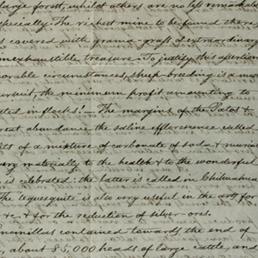 large forests, whilst others are no less remarkable
especially. The richest mine to be found there
covered with grama-grass extraordinary
inexhaustible treasure. To justify this assertion
orable circumstances, sheep-breeding is a mo
the minimum profit amounting to
in flocks! The margins of the Lakes &
great abundance the saline efflorescence called
ts of a mixture of carbonate of soda & muria
ry materially to the health & to the wonderful
is celebrated: the latter is called in Chihuahua
The tequesquite is also very useful in the arts for
&c. & for the reduction of silver-ores.
contained towards the end of
, about 85,000 heads of large cattle, and